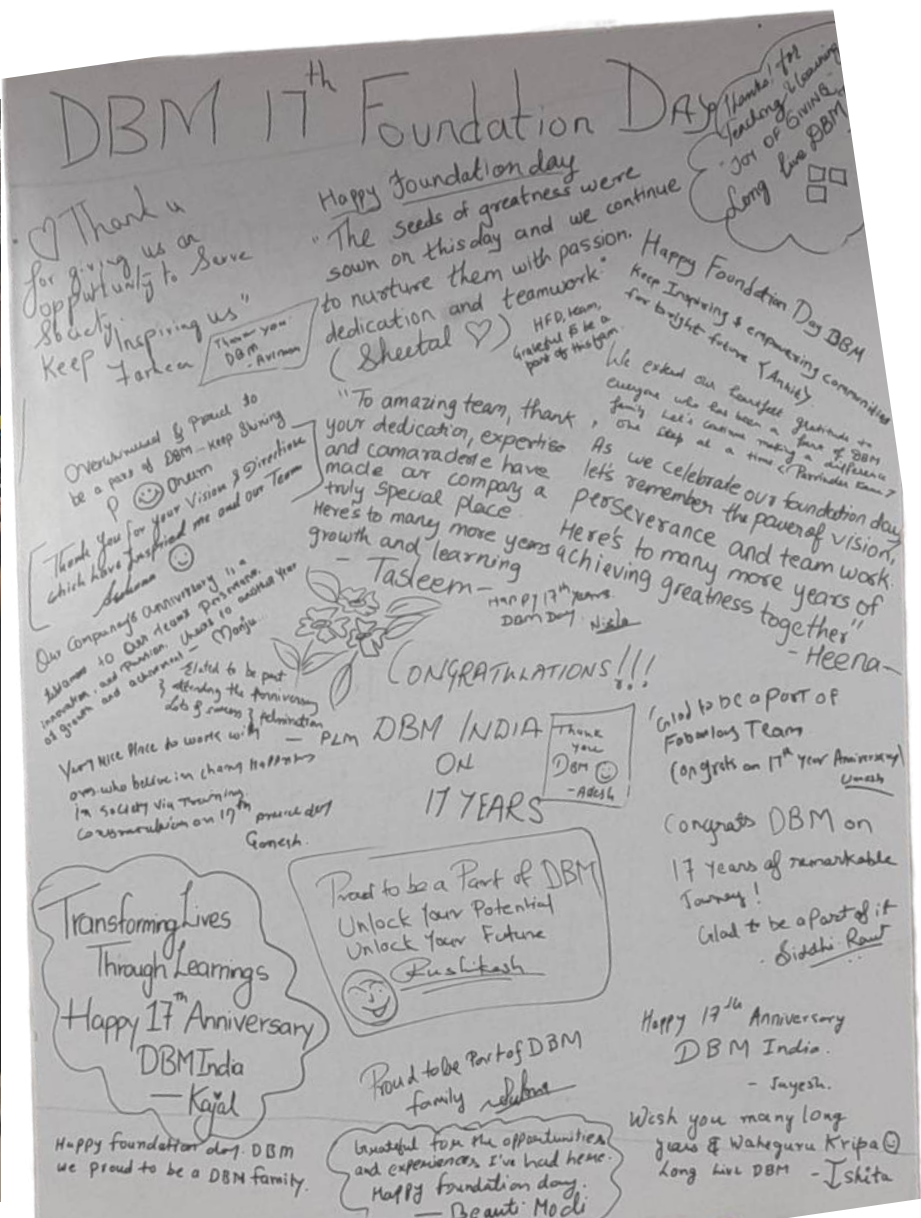 DBM 17th Foundation Day
Thanks! for
Teaching & learning
"JOY OF GIVING"
Long live DBM
Happy Foundation day
"The seeds of greatness were
sown on this day and we continue
to nurture them with passion.
dedication and teamwork"
(Sheetal ♡)
♡ Thank u
for giving us an
opportunity to serve
Society.
Keep Inspiring us"
Farheen
Thank you
DBM
HFD, team,
Grateful to be a
part of this fam.
Happy Foundation Day DBM
Keep Inspiring & empowering communities
for bright future (Ankit).
We extend our heartfelt gratitude to
everyone who has been a part of DBM
family Let's continue making a difference
, one step at a time
Overwhelmed & proud to
be a part of DBM... Keep Shining
Thank You for your Vision & Directions
which have Inspired me and our Team
"To amazing team, thank
your dedication, expertise
and camaraderie have
made our company a
truly special place.
Here's to many more years
growth and learning
- Tasleem -
As we celebrate our foundation day,
let's remember the power of vision,
perseverance and team work.
Here's to many more years of
achieving greatness together"
- Heena -
Our Company's anniversary is a
to our team's
innovation, and passion, cheers to another year
of growth and - Manju...
Happy 17th years.
Elated to be part
& attending the Anniversary
Lots of success & Admiration
- PLM
Very Nice Place to work with
ones who believe in change Happens
in Society via Training.
on 17th
Ganesh.
CONGRATULATIONS!!!
DBM INDIA
ON
17 YEARS
Thank
you
DBM ☺
- Adesh
Glad to be a part of
Fabulous Team
Congrats on 17th Year Anniversary
Umesh
Congrats DBM on
17 years of remarkable
Journey!
Glad to be a part of it
Siddhi Raut
Transforming Lives
Through Learnings
Happy 17th Anniversary
DBM India
— Kajal
Proud to be a Part of DBM
Unlock Your Potential
Unlock Your Future
Rushikesh
Proud to be Part of DBM
family
Happy 17th Anniversary
DBM India.
- Jayesh.
Happy foundation day. DBM
we proud to be a DBM family.
Grateful for the opportunities
and experiences I've had here.
Happy foundation day.
— Beauti Modi
Wish you many long
years & Waheguru Kripa ☺
Long Live DBM
- Ishita